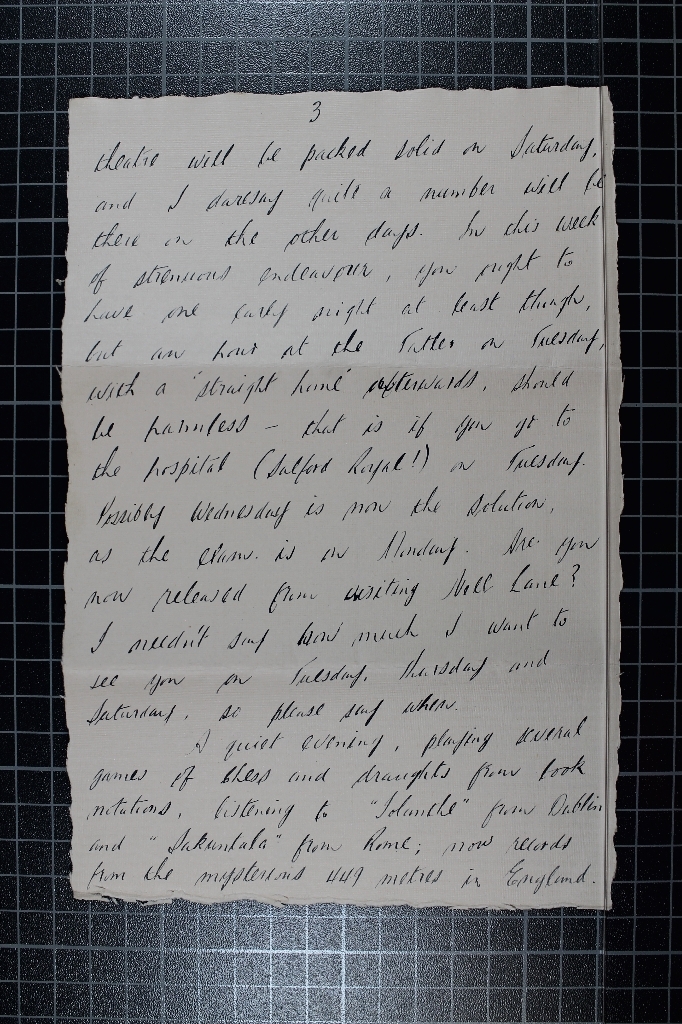 3
theatre will be packed solid on Saturday,
and I daresay quite a number will be
there on the other days. In this week
of strenuous endeavour, you ought to
have one early night at least though,
but an hour at the Tatler on Tuesday,
with a "straight home" afterwards, should
be harmless – that is if you go to
the hospital (Salford Royal!) on Tuesday.
Possibly Wednesday is now the solution,
as the exam. is on Monday. Are you
now released from visiting Nell Lane?
I needn't say how much I want to
see you on Tuesday, Thursday and
Saturday, so please say when.
A quiet evening, playing several
games of chess and draughts from book
notations, listening to "Iolanthe" from Dublin
and "Sakuntala" from Rome; now records
from the mysterious 449 metres in England.